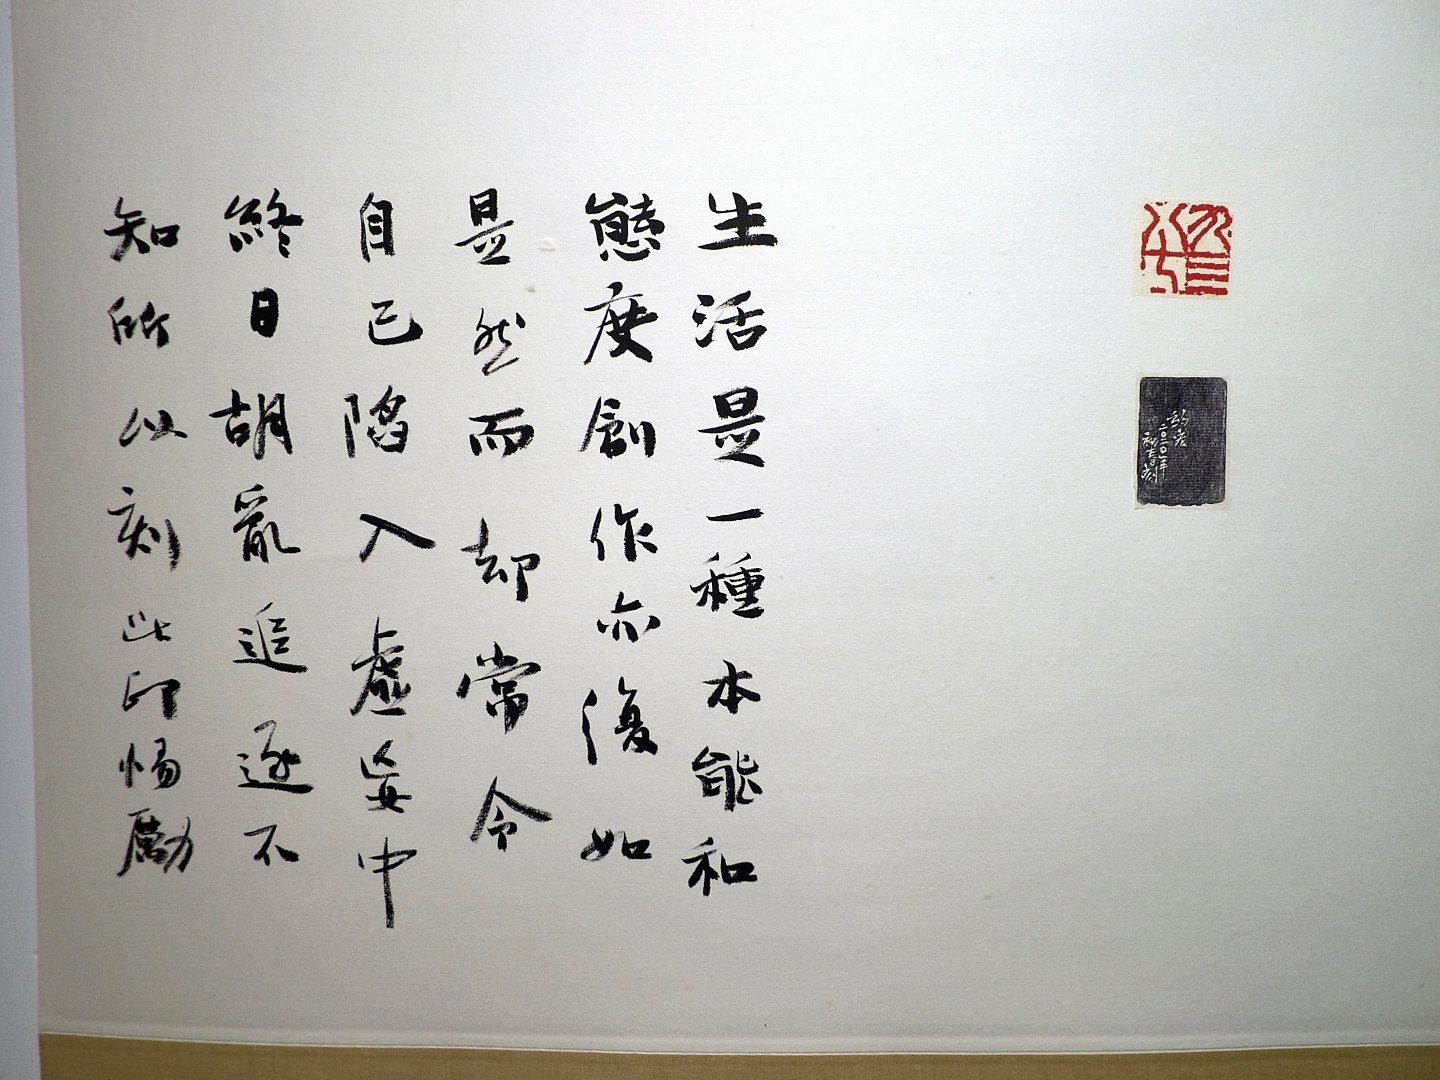 生活是一種本能和
態度創作亦復如
是然而却常令
自己陷入虛妄中
終日胡亂追逐不
知所以刻此印惕勵
二〇二〇年